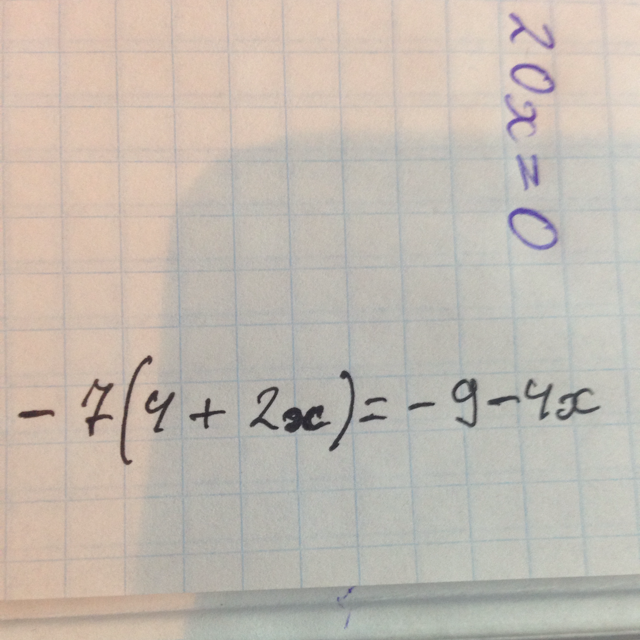 20x = 0
-7(4 + 2x) = -9 - 4x